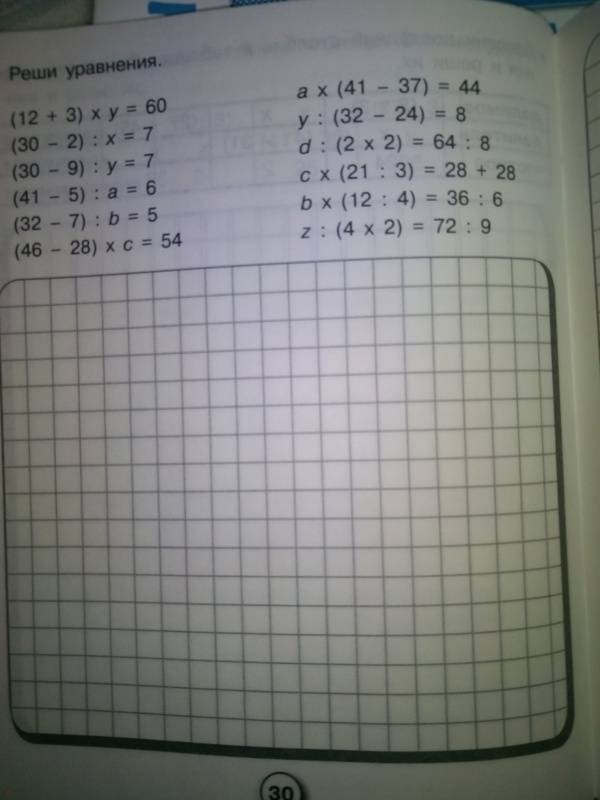 Реши уравнения.
(12 + 3) x y = 60
(30 – 2) : x = 7
(30 – 9) : y = 7
(41 – 5) : a = 6
(32 – 7) : b = 5
(46 – 28) x c = 54
a x (41 – 37) = 44
y : (32 – 24) = 8
d : (2 x 2) = 64 : 8
c x (21 : 3) = 28 + 28
b x (12 : 4) = 36 : 6
z : (4 x 2) = 72 : 9
30